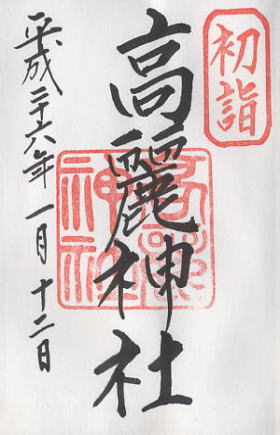 初詣
高麗神社
高麗神社
平成二十六年一月十二日